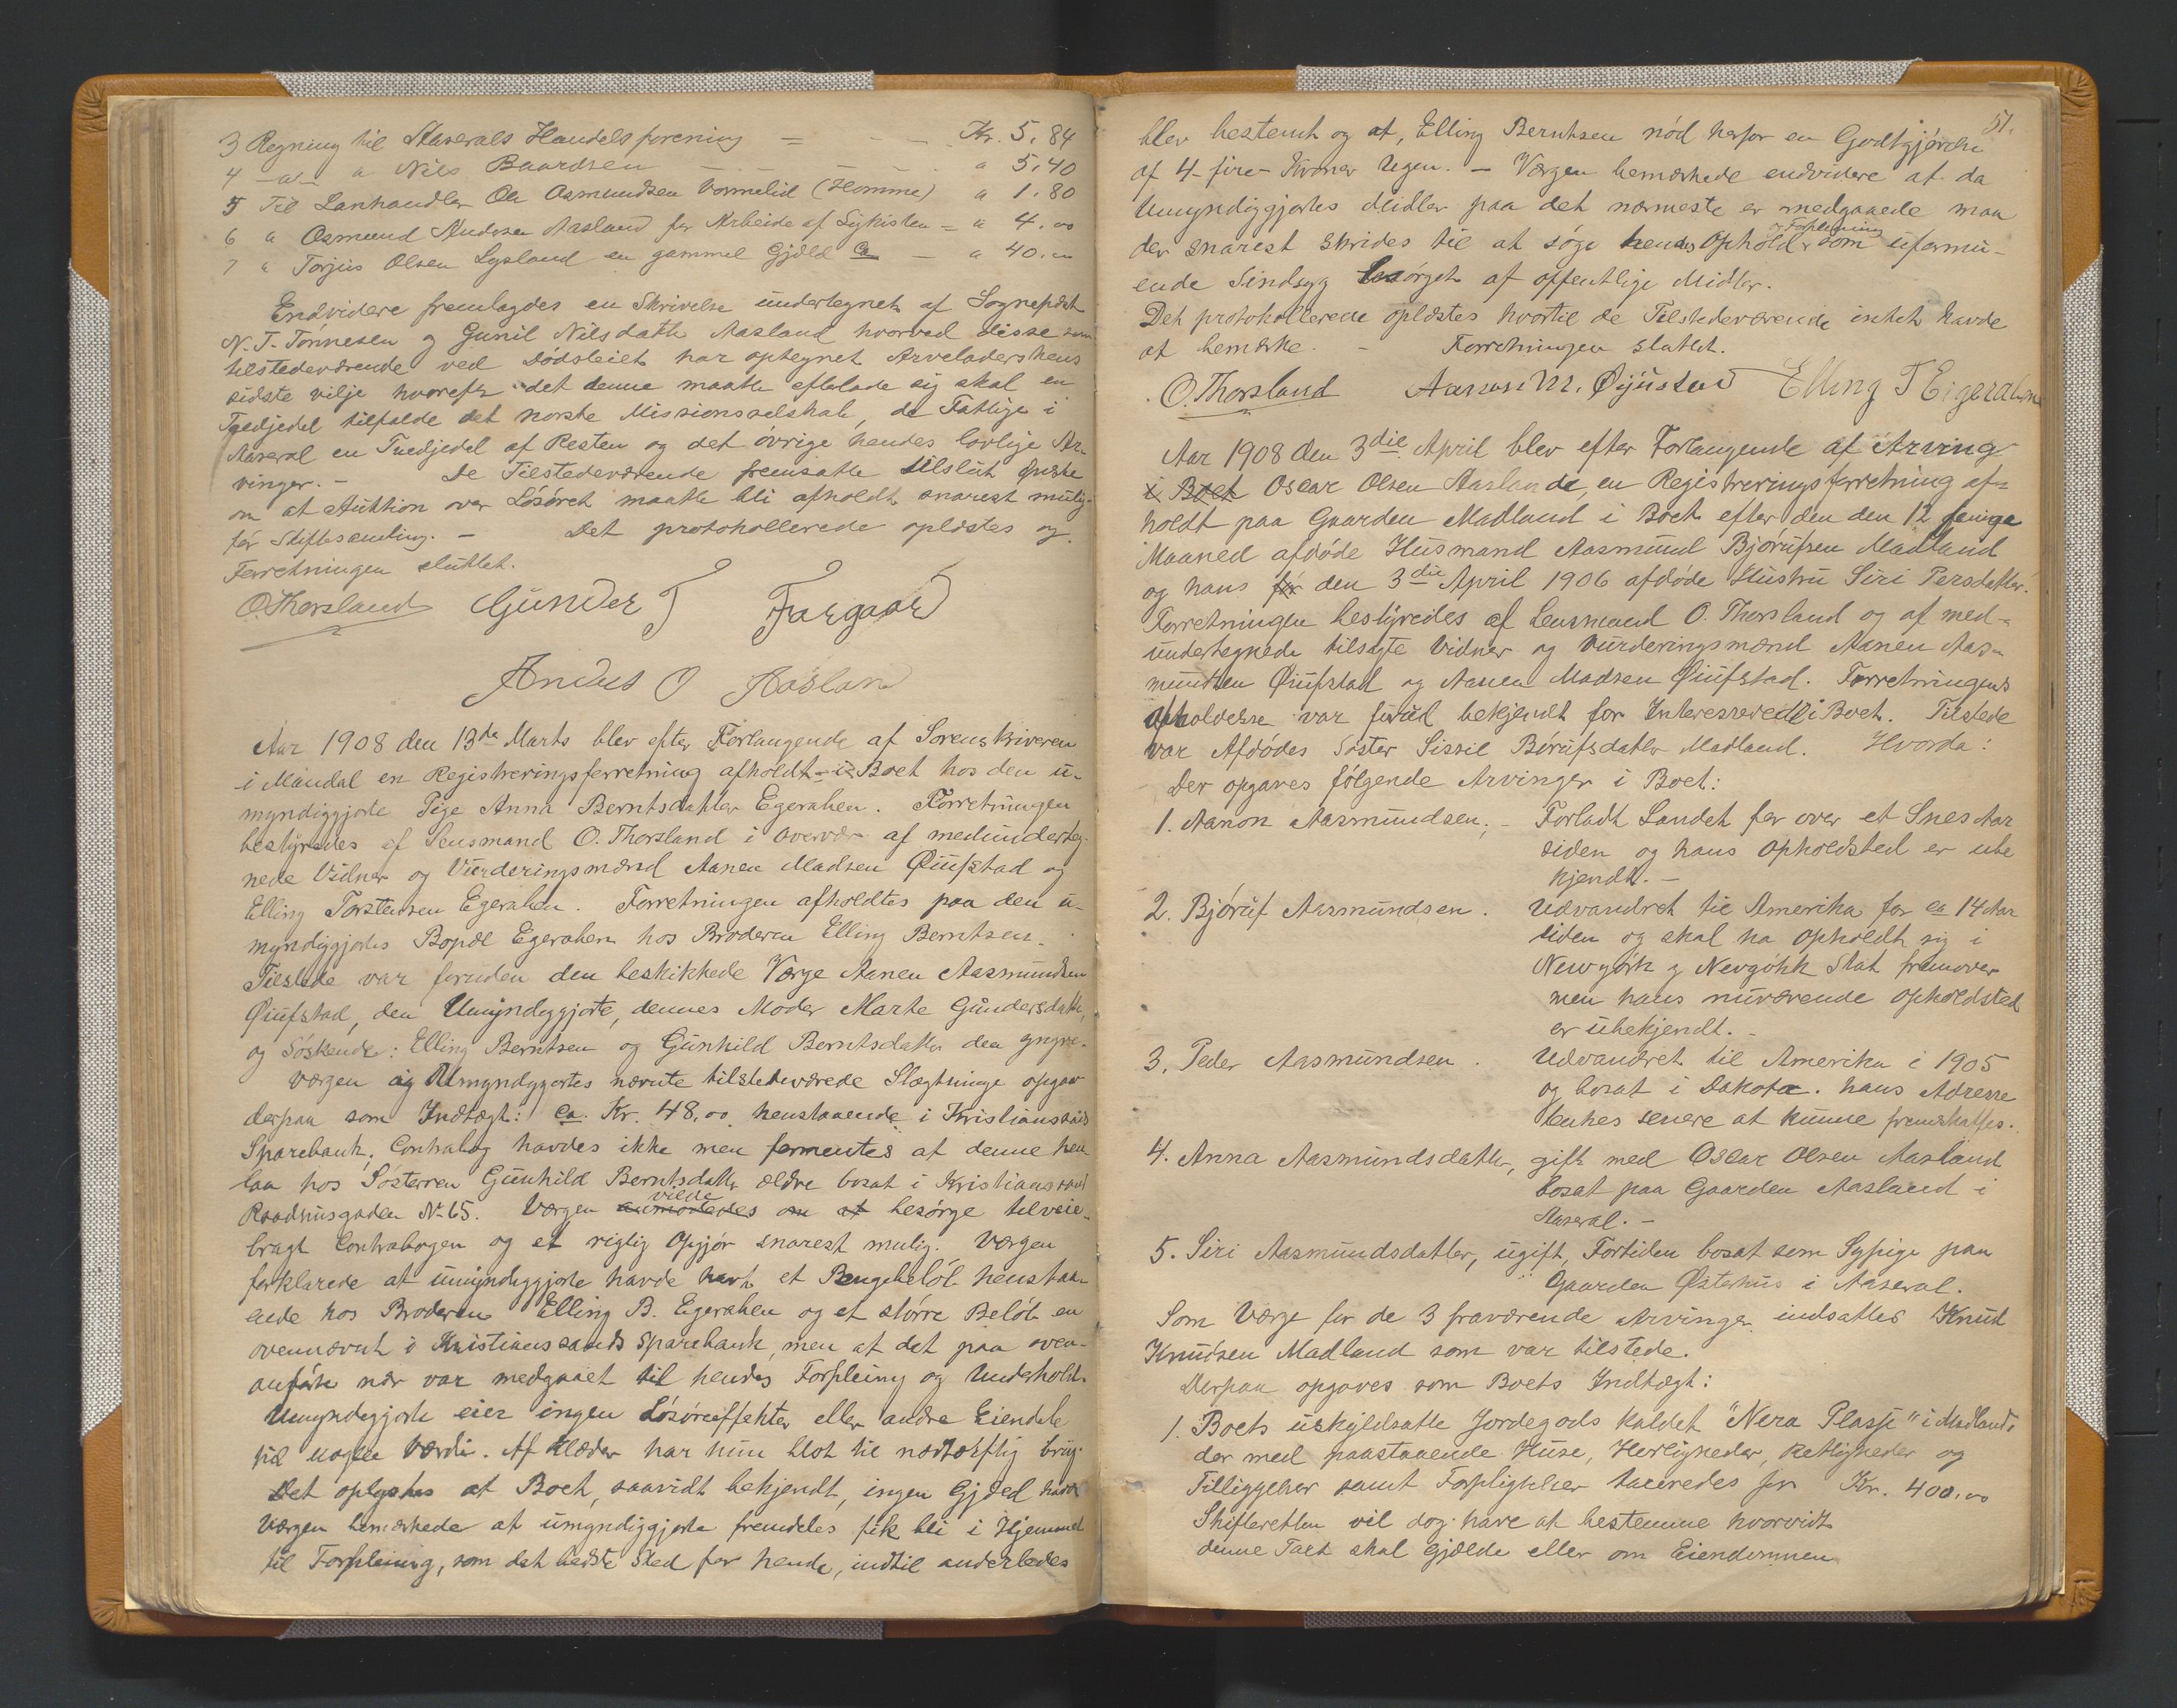 3 Regning til Aaserals Handelsforening = - Kr. 5,84
4 -a- " Nils Baardsen - - - - " 5,40
5 Til Lanhandler Ole Osmundsen Vormelid (Homme) " 1,80
6 " Osmund Andersen Aasland for Arbeide af Ligkisten = " 4.00
7 " Torjus Olsen Lysland en gammel Gjæld Ca - " 40.00
Endvidere fremlagdes en Skrivelse undertegnet af Sogneprest
N. T. Tønnesen og Gunil Nilsdatter Aasland hvorved disse som
tilstedeværende ved Dødsleiet har optegnet Arveladerskens
sidste vilje hvorefter det denne maatte efterlade sig skal en
Tredjedel tilfalde det norske Missionsselskab, de Fattige i
Aaseral en Tredjedel af Resten og det øvrige hendes lovlige Ar-
vinger. - De Tilstedeværende fremsatte tilslut Ønske
om at Auktion over Løsøret maatte bli afholdt snarest mulig
før Skiftesamling. - Det protokollerede oplæstes og
Forretningen sluttet.
O. Thorsland Gunder T Fargaar
Andus O Aaslan
Aar 1908 den 13de Marts blev efter Forlangende af Sorenskriveren
i Mandal en Registreringsforretning afholdt i Boet hos den u-
myndiggjorte Pige Anna Berntsdatter Egerahen. Forretningen
bestyredes af Lensmand O. Thorsland i overvær af medunderteg-
nede Vidner og Vurderingsmænd Aanen Madsen Øiufstad og
Elling Torstensen Egerahen. Forretningen afholdtes paa den u-
myndiggjortes Bopæl Egerahen hos Broderen Elling Berntsen.
Tilstede var foruden den beskikkede Værge Aanen Aasmundsen
Øiufstad, den Umyndiggjorte, dennes Moder Marte Gundersdatter,
og Søskende: Elling Berntsen og Gunhild Berntsdatter den yngre.
Værgen og Umyndiggjortes nævnte tilstedeværede Slægtninge opgav
derpaa som Indtægt: Ca. Kr. 48,00 henstaaende i Kristianssands
Sparebank. Contrabog havdes ikke men formentes at denne hen
laa hos Søsteren Gunhild Berntsdatter ældre bosat i Kristianssand
Raadhusgaden No 65. Værgen anmodedes om at vilde besørge tilveie-
bragt Contrabogen og et rigtig Opgjør snarest mulig. Værgen
forklarede at umyndiggjorte havde havt et Pengebeløb henstaa-
ende hos Broderen Elling B. Egerahen og et større Beløb en
ovennævnt i Kristianssands Sparebank, men at det paa oven-
anførte nær var medgaaet til hendes Forpleining og Underhold.
Umyndiggjorte eier ingen Løsøreeffekter eller andre Eiendele
til nogen Værdi. Af Klæder har hun blot til nødtørftig brug.
Det oplystes at Boet, saavidt bekjendt, ingen Gjæld havde
Værgen bemærkede at umyndiggjorte fremdeles fik bli i Hjemmet
til Forpleining, som det bedste Sted for hende, indtil anderledes
51.
blev bestemt og at, Elling Berntsen nød herfor en Godtgjørelse
af 4-fire- Kroner Ugen. - Værgen bemærkede endvidere at da
Umyndiggjortes Midler paa det nærmeste er medgaaede maa
der snarest skrides til at søge hendes Ophold og Forpleining som uformu-
ende Sindsyg besørget af offentlige Midler.
Det protokollerede oplæstes hvortil de Tilstedeværende intet havde
at bemærke. - Forretningen sluttet.
O. Thorsland Aanon M. Øyustad Elling T Eigerahen
Aar 1908 den 3die April blev efter Forlangende af Arving
i Boet Oscar Olsen Aaslande, en Registreringsforretning af=
holdt paa Gaarden Madland i Boet efter den den 12 forrige
Maaned afdøde Husmand Aasmund Bjørufsen Madland
og hans før den 3die April 1906 afdøde Hustru Siri Persdatter.
Forretningen bestyredes af Lensmand O. Thorsland og af med-
undertegnede tilsagte Vidner og Vurderingsmænd Aanen Aas-
mundsen Øiufstad og Aanen Madsen Øiufstad. Forretningens
Afholdelse var forud bekjendt for Interesserede i Boet. Tilstede
var Afdødes Søster Sissil Børufsdatter Madland. Hvorda:
Der opgaves følgende Arvinger i Boet:
1. Aanon Aasmundsen; - Forladt Landet for over et Snes Aar
siden og hans Opholdsted er ube
kjendt. -
2. Bjøruf Aasmundsen. Udvandret til Amerika for ca 14 Aar
siden og skal ha opholdt sig i
Newyørk og Nevyørk Stat fremover
men hans nuværende Opholdsted
er ubekjendt. -
3. Peder Aasmundsen. Udvandret til Amerika i 1905
og bosat i Dakota. hans Adresse
tænkes senere at kunne fremskaffes.
4. Anna Aasmundsdatter, gift med Oscar Olsen Aasland
bosat paa Gaarden Aasland i
Aaseral. -
5. Siri Aasmundsdatter, ugift, Fortiden bosat som Sypige paa
Gaarden Østerhus i Aaseral.
Som Værge for de 3 fraværende Arvinger indsattes Knut
Knudsen Madland som var tilstede.
Derpaa opgaves som Boets Indtægt:
1. Boets uskyldsatte Jordegods kaldet "Nera Plassje" i Madland
der med paastaaende Huse, Herligheder, Rettigheder og
Tilliggelser samt Forpligtelser taxeredes for Kr. 400.00
Skifteretten vil dog have at bestemme hvorvidt
denne Taxt skal gjælde eller om Eiendommen